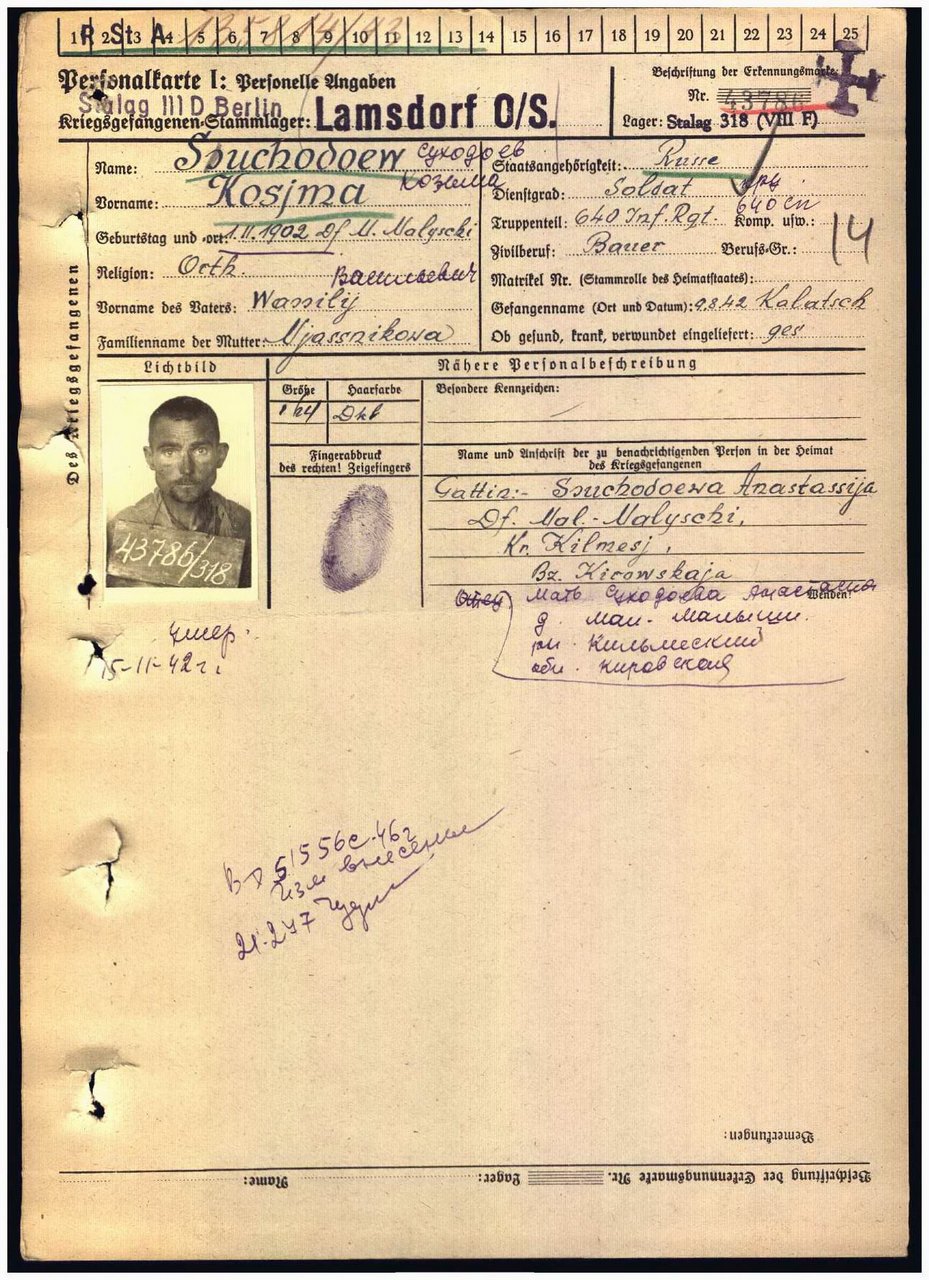 R St A
1 2 3 4 5 6 7 8 9 10 11 12 13 14 15 16 17 18 19 20 21 22 23 24 25
Personalkarte I: Personelle Angaben
Stalag III D Berlin
Kriegsgefangenen-Stammlager: Lamsdorf O/S.
Beschriftung der Erkennungsmarke
Nr. 43786
Lager: Stalag 318 (VIII F)
Des Kriegsgefangenen
Name: Ssuchodoew Суходоев
Vorname: Kosjma Козьма
Geburtstag und -ort: 1.11.1902 Df M. Malyschi
Religion: Orth.
Васильевич
Vorname des Vaters: Wassilij
Familienname der Mutter: Mjassnikowa
Staatsangehörigkeit: Russe
Dienstgrad: Soldat
640 сп
Truppenteil: 640 Inf. Rgt. Komp. usw.:
Zivilberuf: Bauer Berufs-Gr.: 14
Matrikel Nr. (Stammrolle des Heimatstaates):
Gefangenname (Ort und Datum): 9.8.42 Kalatsch
Ob gesund, krank, verwundet eingeliefert: ges
Lichtbild
Nähere Personalbeschreibung
Größe Haarfarbe Besondere Kennzeichen:
Dkl
Fingerabdruck
des rechten! Zeigefingers
43786/318
Name und Anschrift der zu benachrichtigenden Person in der Heimat
des Kriegsgefangenen
Gattin:- Ssuchodoewa Anastassija
Df. Mal.-Malyschi,
Kr. Kilmesj,
Bz. Kirowskaja
Wenden!
Мать Суходоева Анастасия
д. Мал-Малыши.
рн. Кильмеский
обл. Кировская
Умер.
15-11-42 г.
51556с-46г
изм внесены
21.2.47
Bemerkungen:
Beschriftung der Erkennungsmarke Nr. Lager: Name: